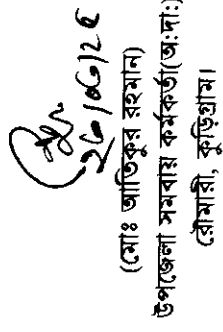 (মোঃ আতিকুর রহমান)
উপজেলা সমবায় কর্মকর্তা(অ:দা:)
রৌমারী, কুড়িগ্রাম।